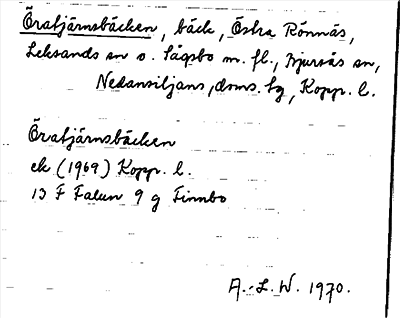 Öratjärnsbäcken, bäck, Östra Rönnäs,
Leksands sn o. Sågsbo m. fl., Bjursås sn,
Nedansiljans, doms. hg, Kopp. l.
Öratjärnsbäcken
ek (1969) Kopp. l.
13 F Falun 9 g Finnbo
A.-L.W. 1970.